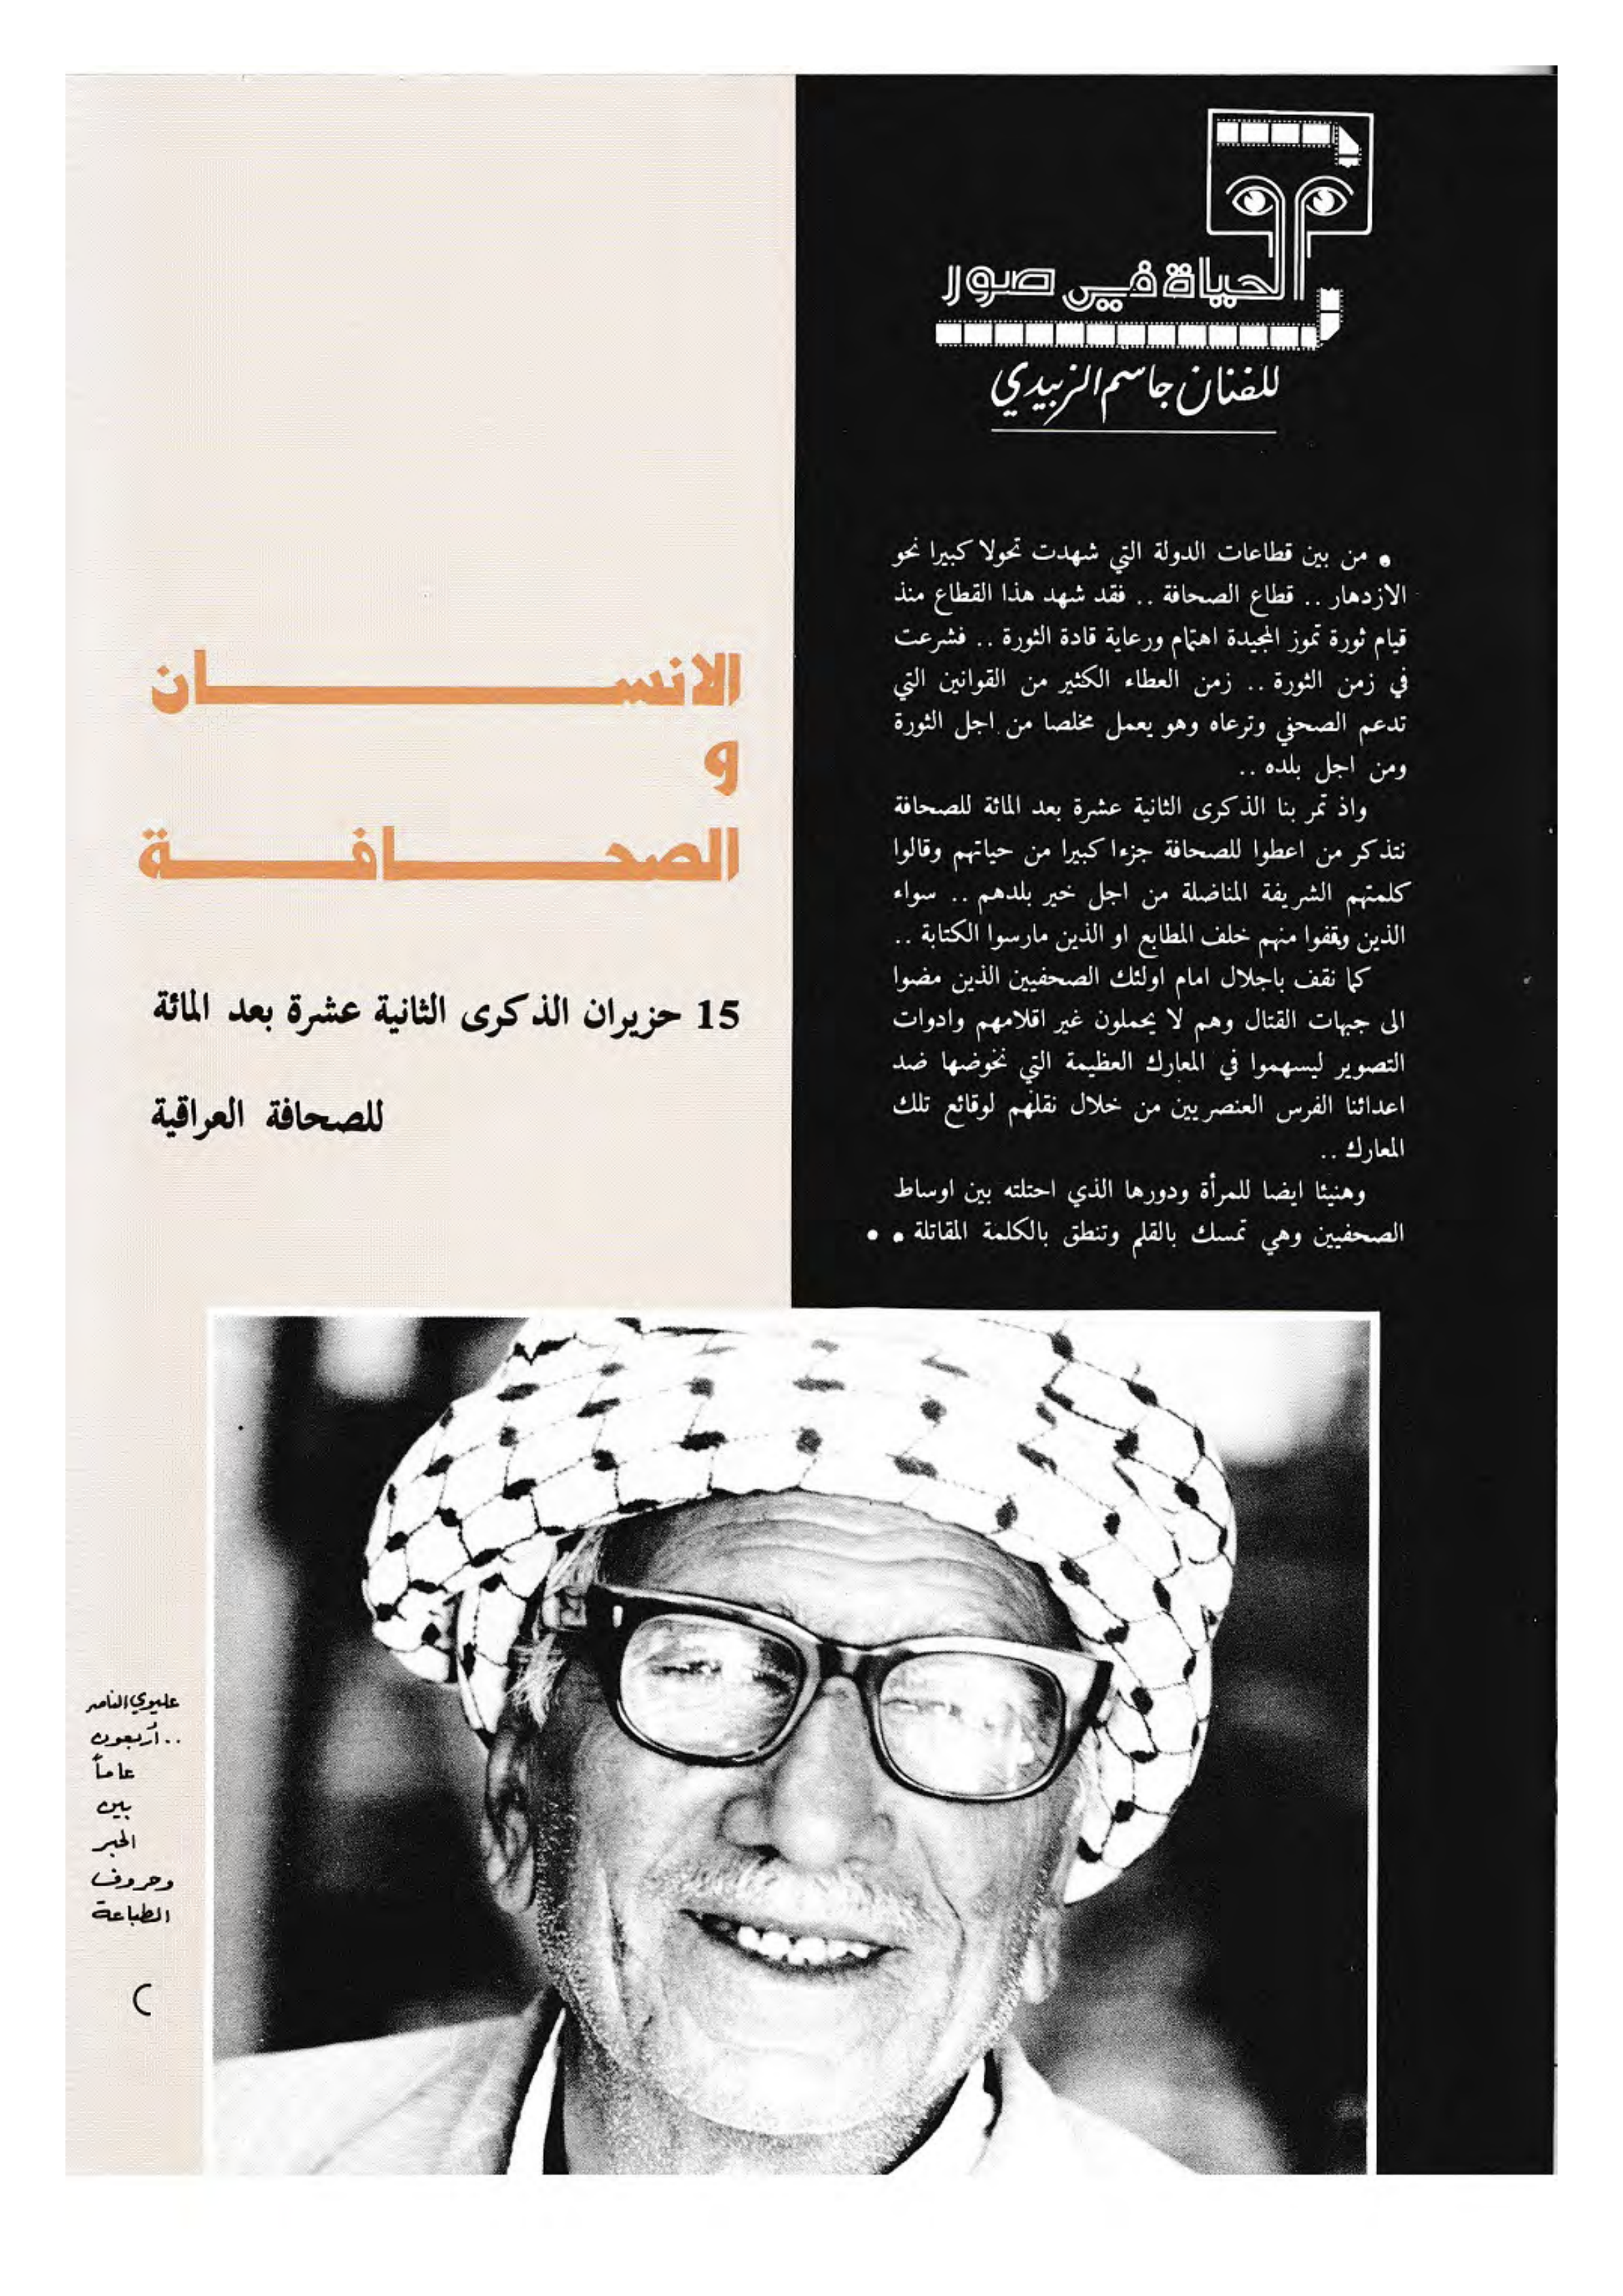 الحياة في صور
للفنان جاسم الزبيدي
• من بين قطاعات الدولة التي شهدت تحولا كبيرا نحو
الازدهار .. قطاع الصحافة .. فقد شهد هذا القطاع منذ
قيام ثورة تموز المجيدة اهتمام ورعاية قادة الثورة .. فشرعت
في زمن الثورة .. زمن العطاء الكثير من القوانين التي
تدعم الصحفي وترعاه وهو يعمل مخلصا من اجل الثورة
ومن اجل بلده ..
واذ تمر بنا الذكرى الثانية عشرة بعد المائة للصحافة
نتذكر من اعطوا للصحافة جزءا كبيرا من حياتهم وقالوا
كلمتهم الشريفة المناضلة من اجل خير بلدهم .. سواء
الذين وقفوا منهم خلف المطابع او الذين مارسوا الكتابة ..
كما نقف باجلال امام اولئك الصحفيين الذين مضوا
الى جبهات القتال وهم لا يحملون غير اقلامهم وادوات
التصوير ليسهموا في المعارك العظيمة التي نخوضها ضد
اعدائنا الفرس العنصريين من خلال نقلهم لوقائع تلك
المعارك ..
وهنيئا ايضا للمرأة ودورها الذي احتلته بين اوساط
الصحفيين وهي تمسك بالقلم وتنطق بالكلمة المقاتلة • •
الانســـان
و
الصحـــافـــة
15 حزيران الذكرى الثانية عشرة بعد المائة
للصحافة العراقية
عليوي الناصر
.. أربعون
عاماً
بين
الحبر
وحروف
الطباعة